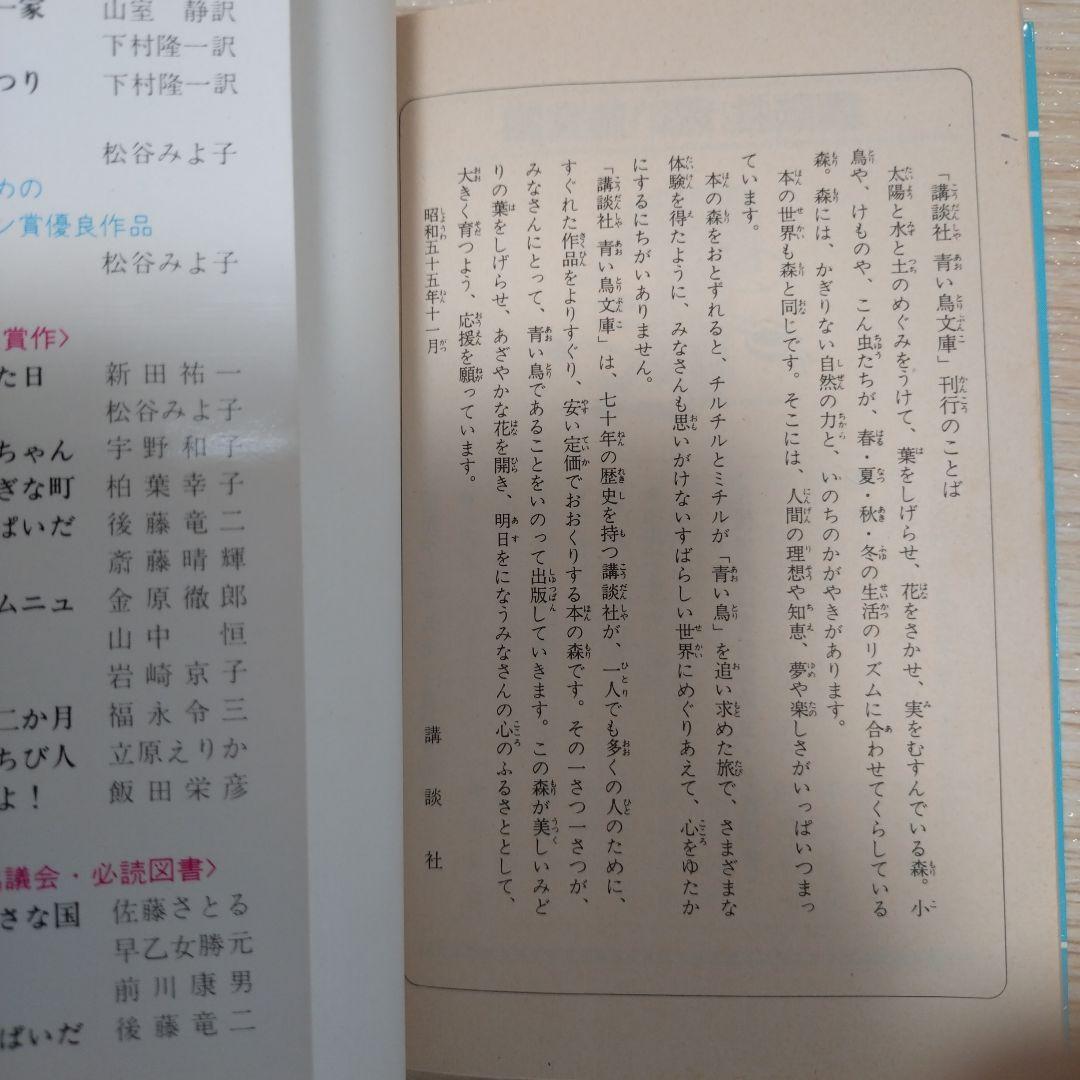 「講談社 青い鳥文庫」刊行のことば
太陽と水と土のめぐみをうけて、葉をしげらせ、花をさかせ、実をむすんでいる森。小
鳥や、けものや、こん虫たちが、春・夏・秋・冬の生活のリズムに合わせてくらしている
森。森には、かぎりない自然の力と、いのちのかがやきがあります。
本の世界も森と同じです。そこには、人間の理想や知恵、夢や楽しさがいっぱいつまっ
ています。
本の森をおとずれると、チルチルとミチルが「青い鳥」を追い求めた旅で、さまざまな
体験を得たように、みなさんも思いがけないすばらしい世界にめぐりあえて、心をゆたか
にするにちがいありません。
「講談社 青い鳥文庫」は、七十年の歴史を持つ講談社が、一人でも多くの人のために、
すぐれた作品をよりすぐり、安い定価でおおくりする本の森です。その一さつ一さつが、
みなさんにとって、青い鳥であることをいのって出版していきます。この森が美しいみど
りの葉をしげらせ、あざやかな花を開き、明日をになうみなさんの心のふるさととして、
大きく育つよう、応援を願っています。
昭和五十五年十一月
講談社
一家 山室 静訳
下村隆一訳
つり 下村隆一訳
松谷みよ子
めの
ン賞優良作品
松谷みよ子
賞作〉
た日 新田祐一
松谷みよ子
ちゃん 宇野和子
ぎな町 柏葉幸子
ぱいだ 後藤竜二
斎藤晴輝
ムニュ 金原徹郎
山中 恒
岩崎京子
二か月 福永令三
ちび人 立原えりか
よ！ 飯田栄彦
議会・必読図書〉
さな国 佐藤さとる
早乙女勝元
前川康男
ぱいだ 後藤竜二